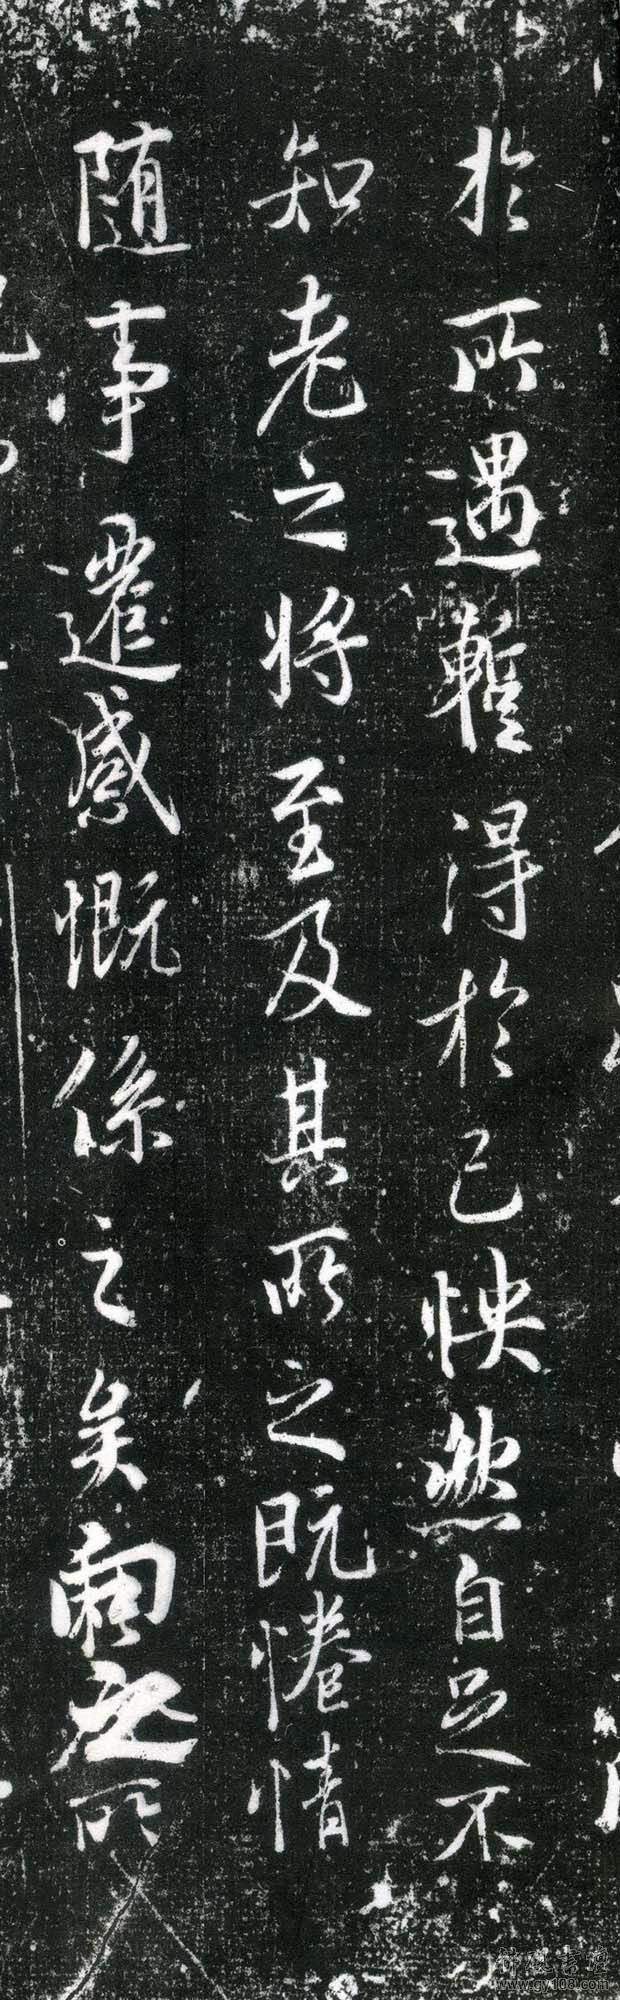 於所遇暫得於己怏然自足不
知老之將至及其所之既惓情
隨事遷感慨係之矣向之所
www.gy108.com